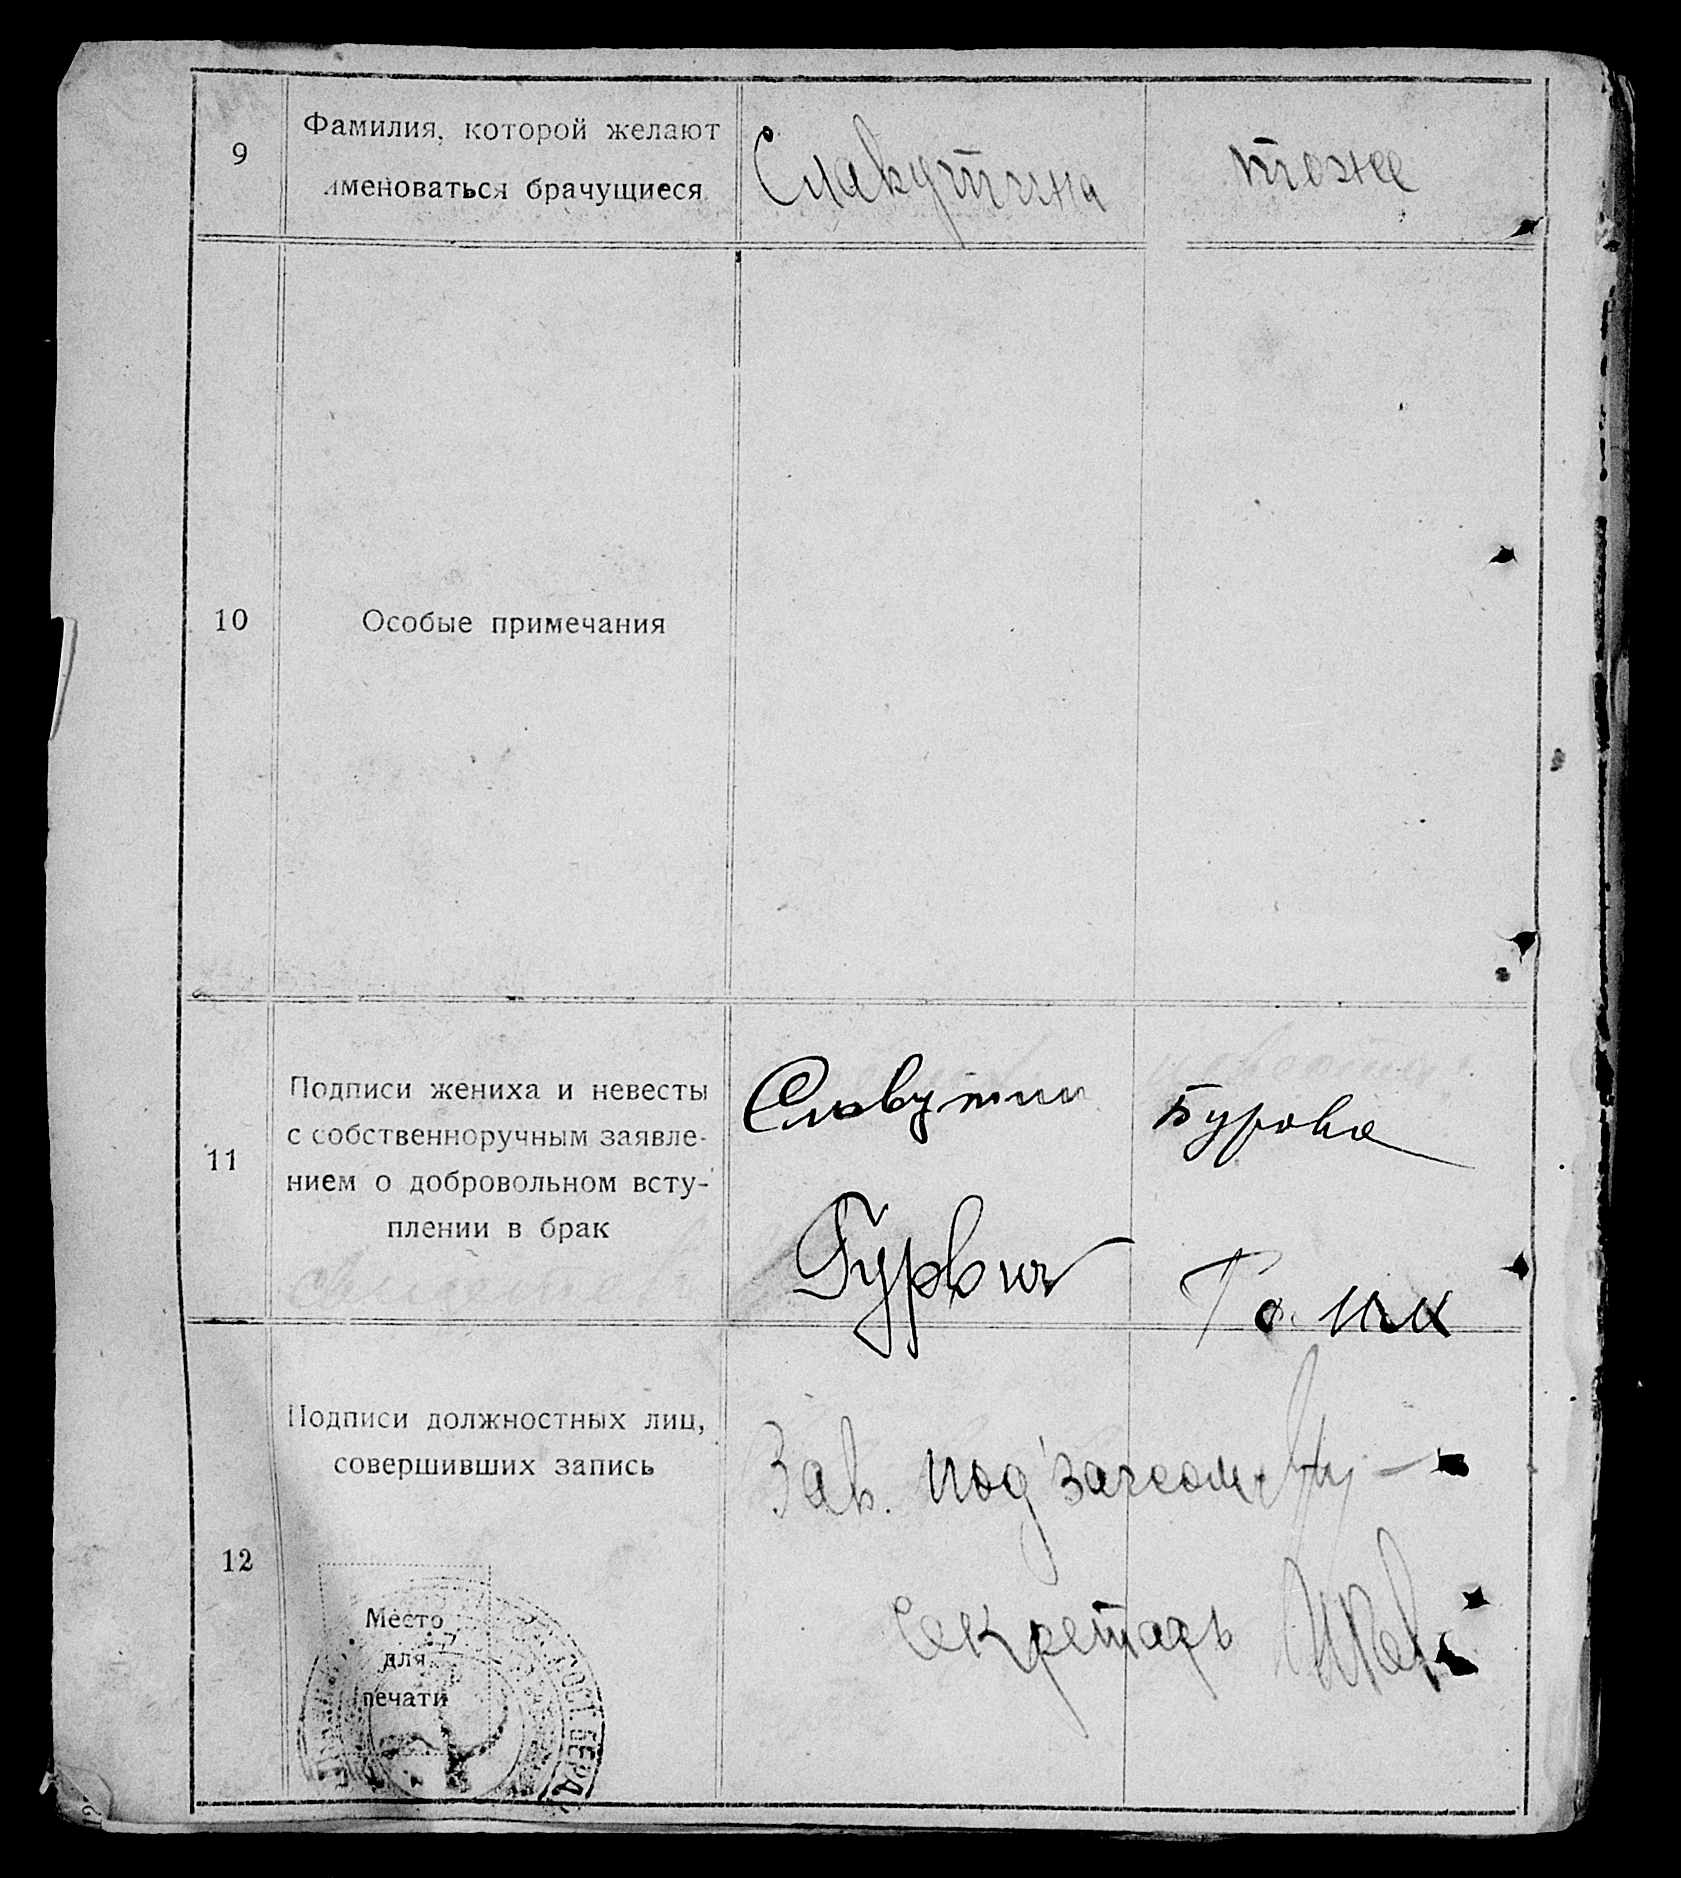 9
Фамилия, которой желают
именоваться брачущиеся
Славутина
тоже
10
Особые примечания
11
Подписи жениха и невесты
с собственноручным заявле-
нием о добровольном всту-
плении в брак
Славутин
Бурова
Гурвич
12
Подписи должностных лиц,
совершивших запись
Зав. под'загсом
Секретарь
Место
для
печати